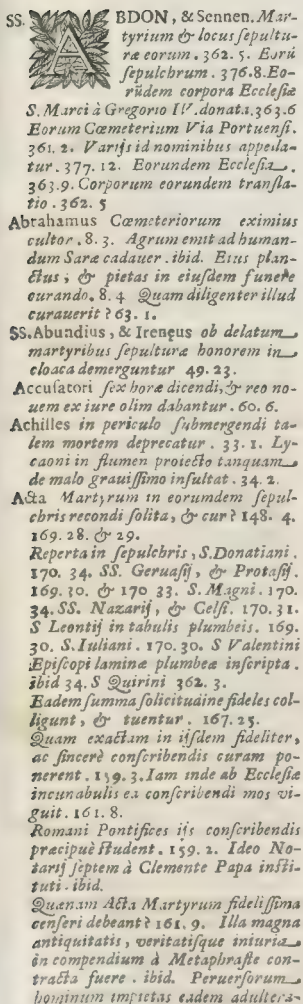 SS. ABDON, & Sennen. Mar-
tyrium & locus sepultu-
ræ eorum. 362. 5. Eorũ
sepulchrum. 376.8. Eo-
rũdem corpora Ecclesiæ
S. Marci à Gregorio IV. donata. 363.6
Eorum Cœmeterium Via Portuensi.
361. 2. Varijs id nominibus appella-
tur. 377. 12. Eorundem Ecclesia.
363.9. Corporum eorundem transla-
tio. 362. 5
Abrahamus Cœmeteriorum eximius
cultor. 8. 3. Agrum emit ad human-
dum Saræ cadauer. ibid. Eius plan-
ctus, & pietas in eiusdem funere
curando. 8. 4 Quam diligenter illud
curauerit? 63. 1.
SS. Abundius, & Ireneus ob delatum
martyribus sepulturæ honorem in
cloaca demerguntur 49. 23.
Accusatori sex horæ dicendi, & reo no-
uem ex iure olim dabantur. 60. 6.
Achilles in periculo submergendi ta-
lem mortem deprecatur. 33. 1. Ly-
caoni in flumen proiecto tanquam
de malo grauissimo insultat. 34. 2.
Acta Martyrum in eorumdem sepul-
chris recondi solita, & cur? 148. 4.
169. 28. & 29.
Reperta in sepulchris, S. Donatiani.
170. 34. SS. Geruasij, & Protasij.
169. 30. & 170 33. S. Magni. 170.
34. SS. Nazarij, & Celsi. 170. 31.
S Leontij in tabulis plumbeis. 169.
30. S. Iuliani. 170. 30. S Valentini
Episcopi laminæ plumbeæ inscripta.
ibid 34. S Quirini 362. 3.
Eadem summa solicitudine fideles col-
ligunt, & tuentur. 167. 25.
Quam exactam in ijsdem fideliter,
ac sincerè conscribendis curam po-
nerent. 159. 3. Iam inde ab Ecclesiæ
incunabulis ea conscribendi mos vi-
guit. 161. 8.
Romani Pontifices ijs conscribendis
præcipuè student. 159. 2. Ideo No-
tarij septem à Clemente Papa insti-
tuti. ibid.
Quænam Acta Martyrum fidelissima
censeri debeant? 161. 9. Illa magna
antiquitatis, veritatisque iniuria
in compendium à Metaphraste con-
tracta fuere. ibid. Peruersorum
hominum impietas eadem adultera-